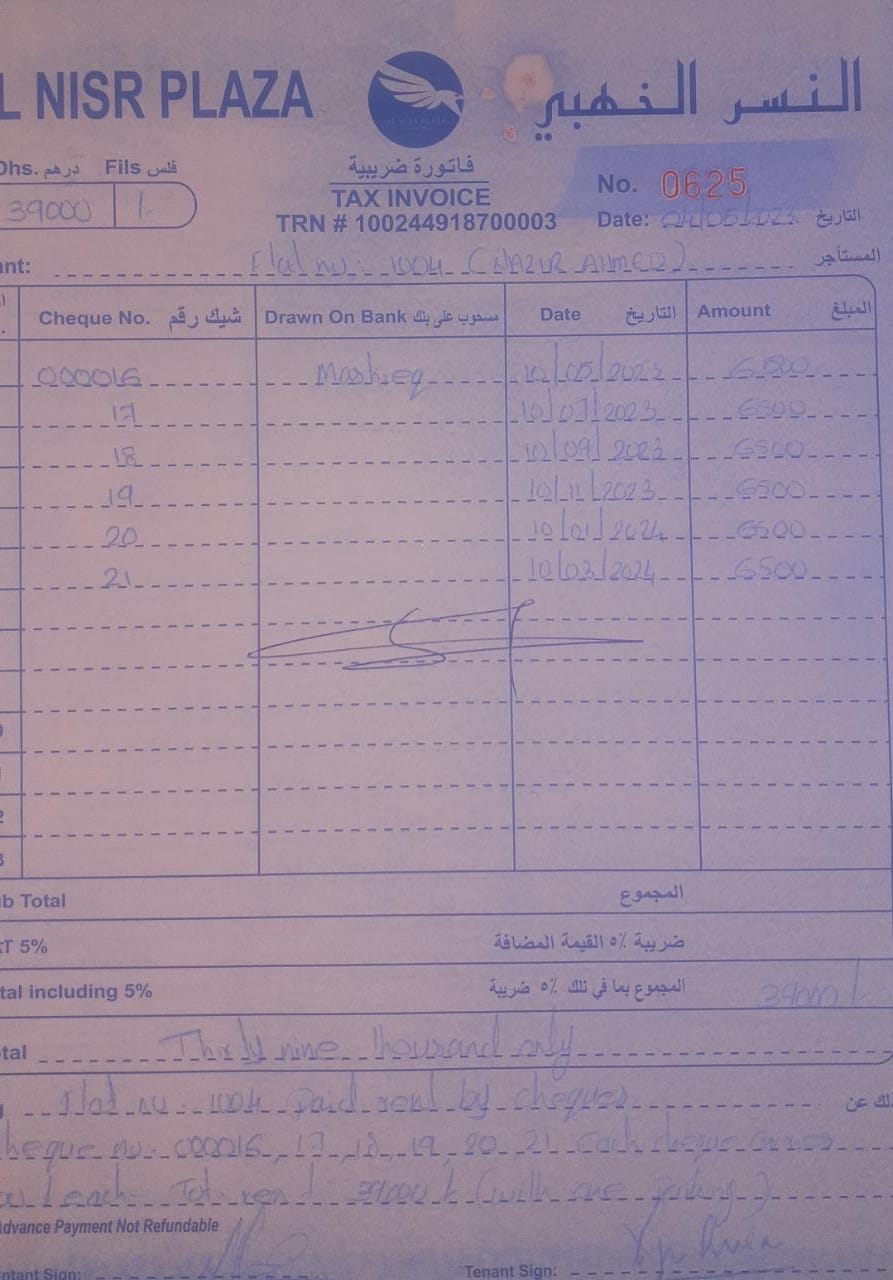 L NISR PLAZA
النسر الذهبي
Dhs. درهم Fils فلس
39000 /.
فاتورة ضريبية
TAX INVOICE
TRN # 100244918700003
No. 0625
Date: 04/05/2023 التاريخ
ant: Flat no. 1004 (NAZIR AHMED) المستأجر
Cheque No. شيك رقم Drawn On Bank مسحوب على بنك Date التاريخ Amount المبلغ
000016 Mashreq 10/05/2023 6500
17 10/07/2023 6500
18 10/09/2023 6500
19 10/11/2023 6500
20 10/01/2024 6500
21 10/03/2024 6500
b Total المجموع
T 5% ضريبة ٥٪ القيمة المضافة
tal including 5% المجموع بما في تلك ٥٪ ضريبة 39000/
tal Thirty nine thousand only
Flat no. 1004 paid rent by cheques لك عن
heque no. 000016, 17, 18, 19, 20, 21 each cheque
each Tot rent 39000/ (with one parking)
dvance Payment Not Refundable
ntant Sign: Tenant Sign: